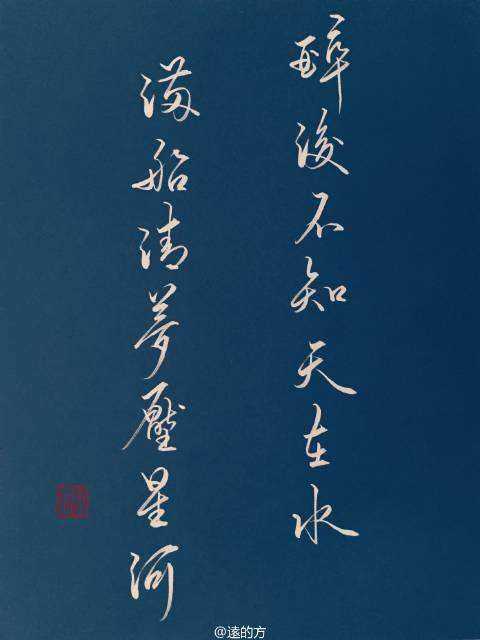 醉後不知天在水
满船清夢壓星河
@遠的方